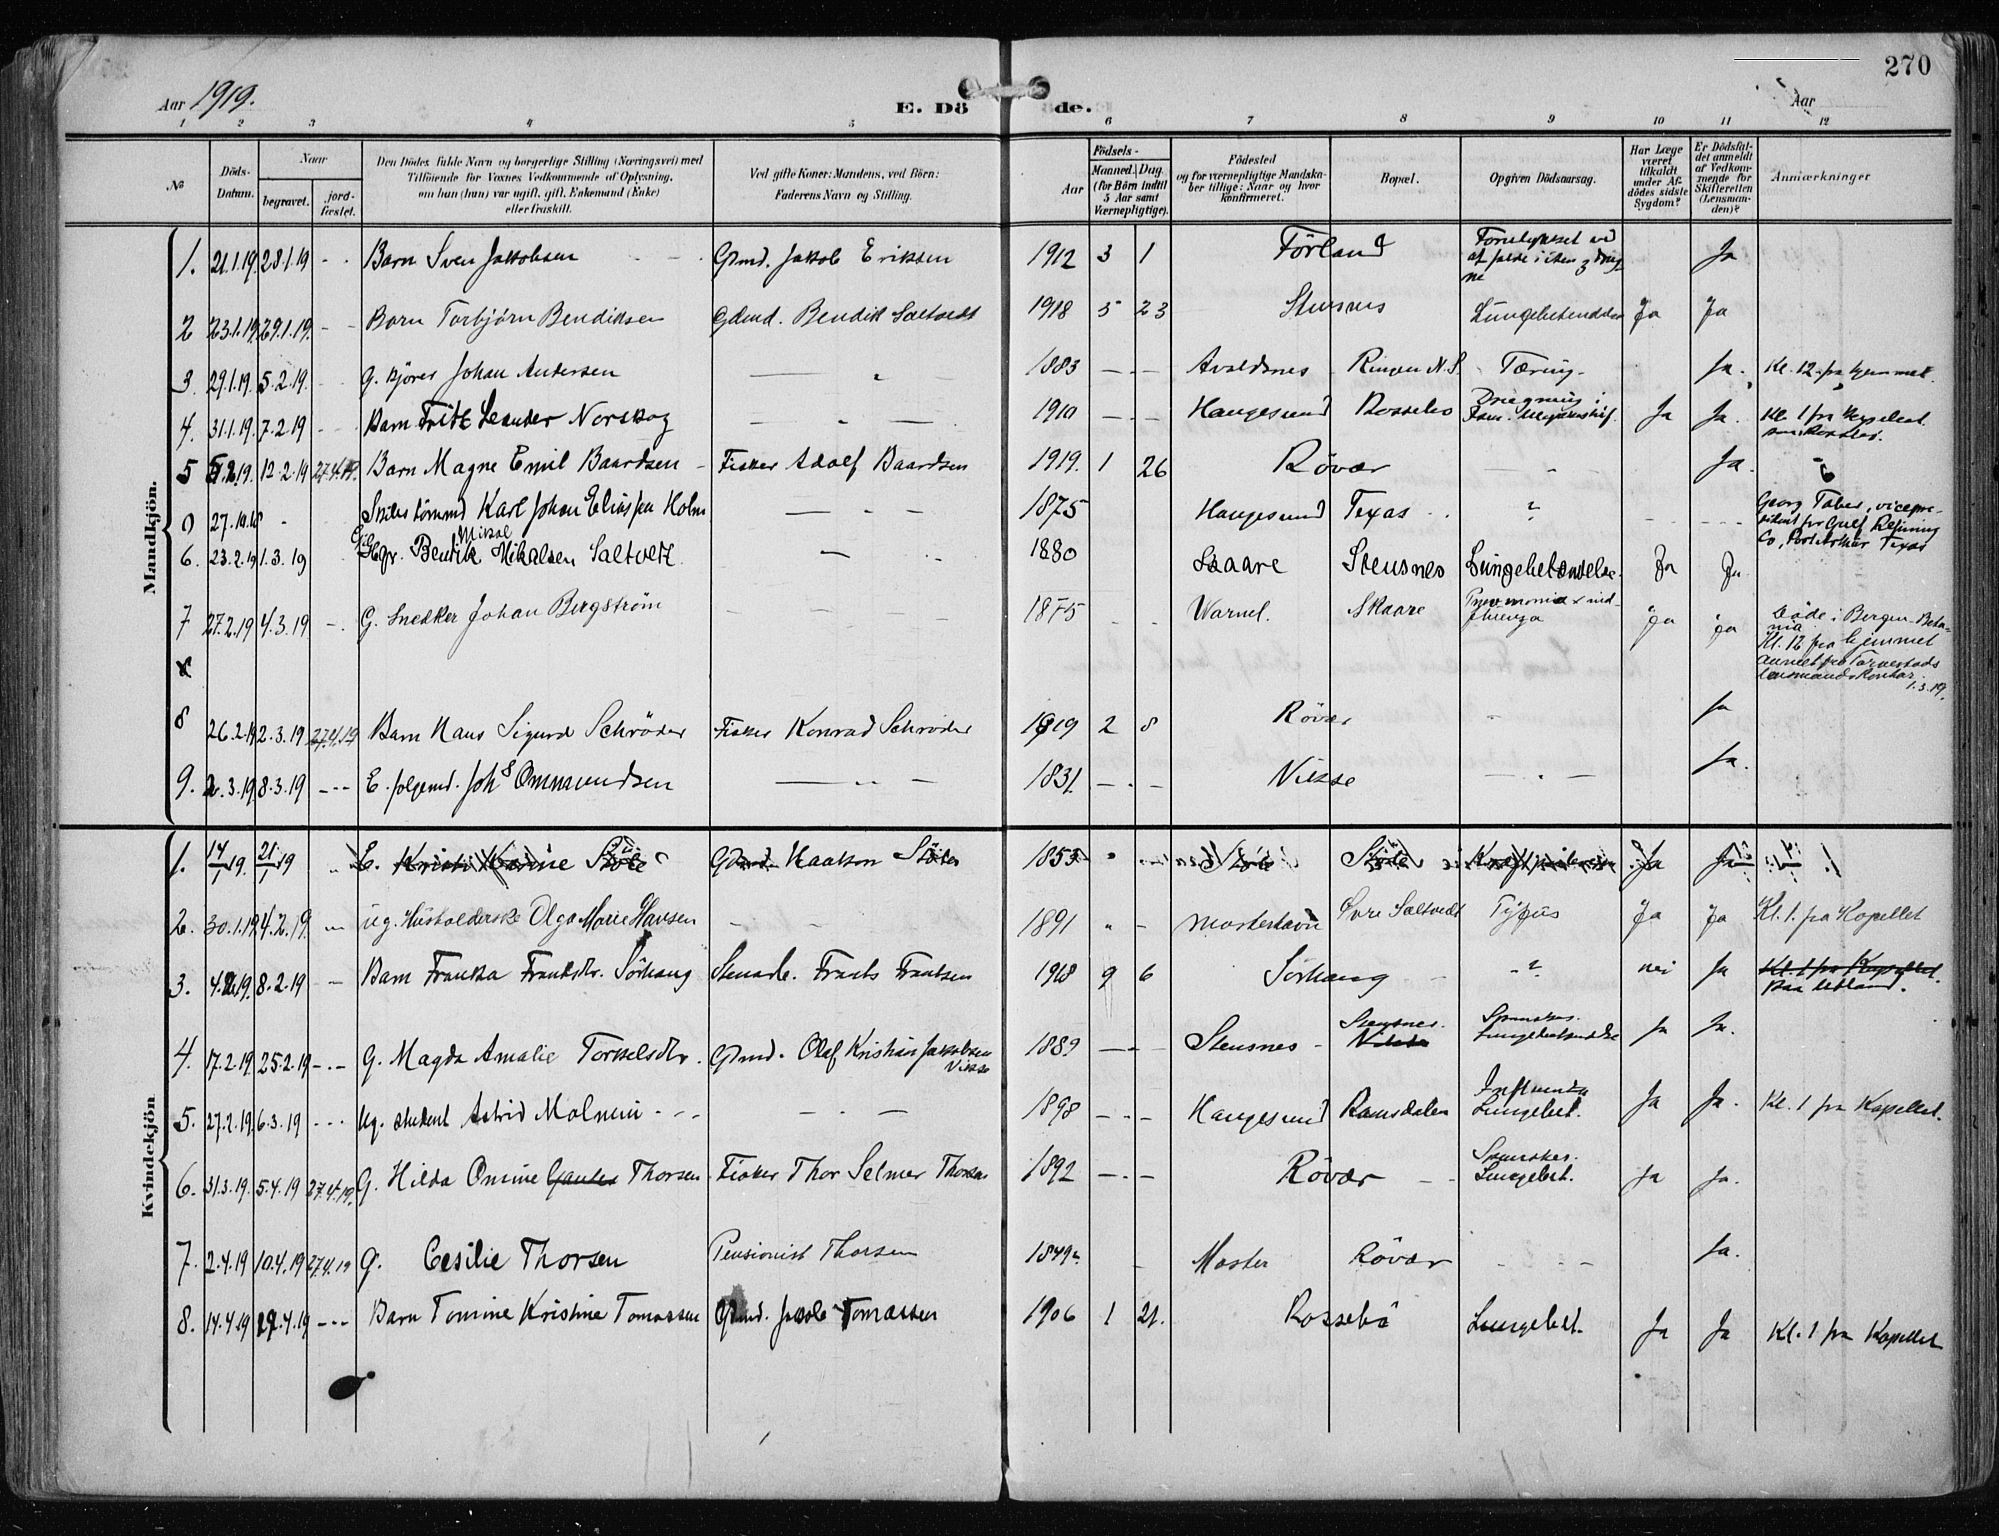 270
Aar 1919.
E. Döde.
Aar
1 2 3 4 5 6 7 8 9 10 11 12
No
Döds-Datum.
Naar
begravet.
jord-fæstet.
Den Dödes fulde Navn og borgerlige Stilling (Næringsvei) med
Tilföiende for Voxnes Vedkommende af Oplysning,
om han (hun) var ugift, gift, Enkemand (Enke)
eller fraskilt.
Ved gifte Koner: Mandens, ved Börn:
Faderens Navn og Stilling.
Födsels-
Aar
Maaned. Dag
(for Börn indtil
5 Aar samt
Værnepligtige).
Födested
og for værnepligtige Mandska-
ber tillige: Naar og hvor
konfirmeret.
Bopæl.
Opgiven Dödsaarsag.
Har Læge
været
tilkaldt
under Af-
dödes sidste
Sygdom?
Er Dödsfal-
det anmeldt
af Vedkom-
mende for
Skifteretten
(Lensman-
den)?
Anmærkninger
Mandkjön.
1. 21.1.19 28.1.19 - - Barn Sven Jakobsen Gbmd. Jakob Eriksen 1912 3 1 Förland Ja
2 23.1.19 29.1.19. - - Barn Torbjørn Bendiksen Gbmd. Bendik Saltvedt 1918 5 23 Stensnes Lungebetendelse Ja Ja
3. 29.1.19. 5.2.19. G. Johan Andersen 1883 - - - Avaldsnes Ringen N.S. Tæring. Ja. Kl. 12 fra hjemmet.
4. 31.1.19 7.2.19 Barn Fritz Leander Norskog 1910 - - - Haugesund Rossebø Ja Ja. Kl. 1 fra
5 5.2.19. 12.2.19 27.4.19. Barn Magne Emil Baardsen Fisker Adolf Baardsen 1919. 1 26 Røvær Ja.
0 27.10.18 - Karl Johan Eliassen Holm 1875 Haugesund Texas ? Georg Taber, vicepre-
sident for Gulf Refining
Co, Port Arthur Texas
6. 23.2.19 1.3.19 Mikal
Bendik Mikalsen Saltvett 1880 Skaare Stensnes Lungebetændelse. Ja Ja
7 27.2.19 4.3.19 G. Snedker Johan Bergström 1875 Skaare Ja Ja Døde i Bergen Beta-
nia
Kl. 12 fra hjemmet
anmelt fra Torvestads
lensmandskontor
1.3.19.
8 26.2.19 2.3.19 27.4.19 Barn Hans Sigurd Schröder Fisker Konrad Schrøder 1919 2 8 Røvær Ja
9. 2.3.19 8.3.19 - - - E. Joh^s Ommundsen 1831. - - - Vikse Ja.
Kvindekjön
1. 14/1 19. 21/1 19 E. Haakon 1853 Ja Ja
2. 30.1.19 4.2.19. ug. Husholderske Olga Marie Hansen 1891 Mosterhavn Øvre Saltvedt Tyfus Ja Ja Kl. 1. fra Kapellet
3. 4.2.19. 8.2.19 Barn Franka Sørhaug Frants Frantsen 1918 9 6 Sørhaug ? nei Ja Kl. 1 fra Kapellet.
Paa Utland.
4. 17.2.19. 25.2.19 - - - G. Magda Amalie Torkelsdtr. Gbmd. Olaf Kristian Jakobsen
Vikse 1889 - - - Stensnes Stensnes.
Vikse Spanskes.
Lungebetendelse Ja Ja.
5. 27.2.19 6.3.19 - - - Ug. student Astrid Malmin 1898 - - - Haugesund Ramsdalen Influensa
Lungebet. Ja Ja. Kl. 1 fra Kapellet.
6. 31.3.19. 5.4.19 27.4.19. G. Hilda Omine Thorsen Fisker Thor Selmer Thorsen 1892 - - - Røvær Spanskes.
Lungebet. Ja Ja.
7. 2.4.19 10.4.19 27.4.19 G. Cesilie Thorsen Pensionist Thorsen 1849 Moster Røvær Ja.
8. 14.4.19 .4.19 - - - Barn Tomine Kristine Tomassen Gbmd. Jakob Tomassen 1906 1 21. Rossebö Lungebet. Ja Ja Kl. 1 fra Kapellet